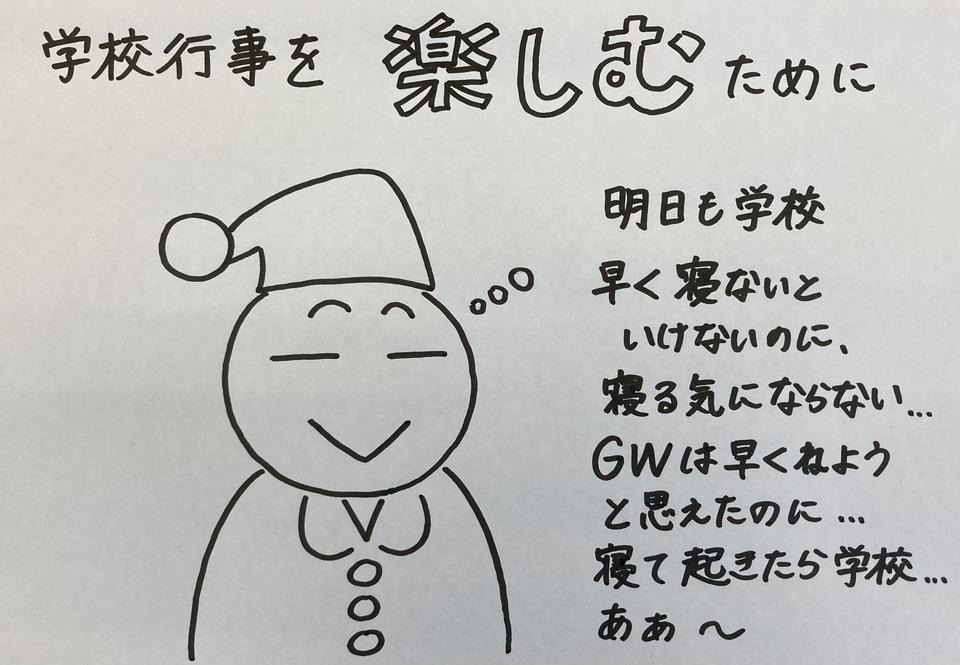 学校行事を 楽しむ ために
明日も学校
早く寝ないと
いけないのに、
寝る気にならない…
GWは早くねよう
と思えたのに…
寝て起きたら学校…
あぁ〜